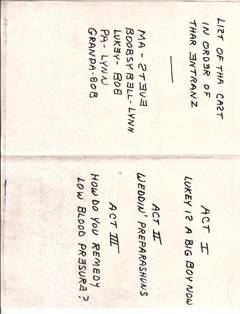 LIST OF THA CAST
IN ORDER OF
THAR ENTRANZ
MA - STEVE
BOOBSY BELL - LYNN
LUKEY - BOB
PA - LYNN
GRANDA - BOB
ACT I
LUKEY IS A BIG BOY NOW
ACT II
WEDDIN' PREPARASHUNS
ACT III
HOW DO YOU REMEDY
LOW BLOOD PRESURE?